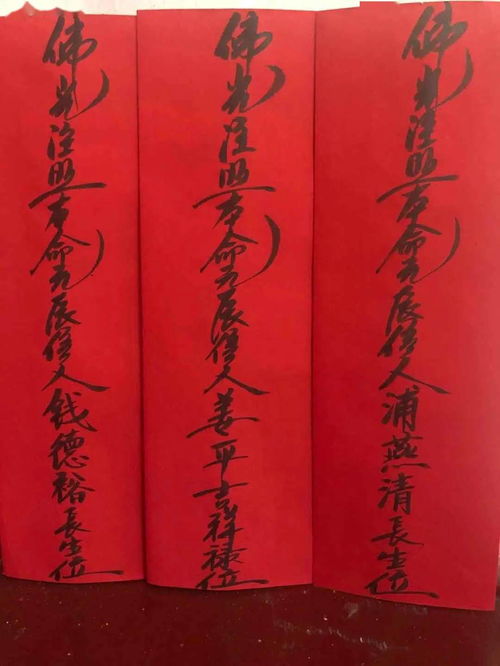 佛光注照本命元辰信人浦燕清長生位
佛光注照本命元辰信人姜平吉祥祿位
佛光注照本命元辰信人钱德裕長生位